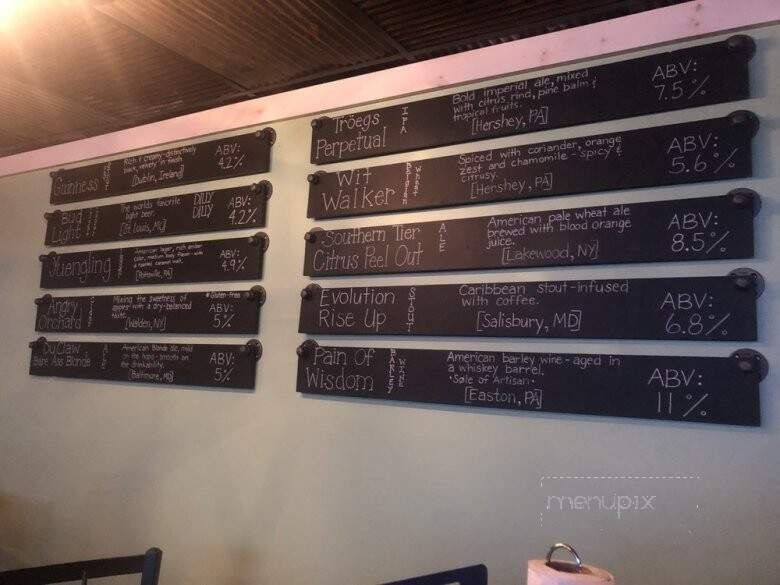 Guinness
STOUT
Rich & creamy-distinctively
black, velvety in finish
[Dublin, Ireland]
ABV:
4.2%
Bud
Light
The worlds favorite
light beer.
[St. Louis, MO]
DILLY
DILLY
ABV:
4.2%
Yuengling
American lager, rich amber
color, medium body flavor-with
a toasted caramel malt.
[Pottsville, PA]
ABV:
4.9%
Angry
Orchard
Mixing the sweetness of
apples with a dry-balanced
taste.
[Walden, NY]
*Gluten-Free
ABV:
5%
DuClaw
Bare Ass Blonde
American Blonde ale, mild
on the hops-smooth on
the drinkability.
[Baltimore, MD]
ABV:
5%
Tröegs
Perpetual
IPA
Bold imperial ale, mixed
with citrus rind, pine balm &
tropical fruits.
[Hershey, PA]
ABV:
7.5%
Wit
Walker
Belgian
Wheat
Spiced with coriander, orange
zest and chamomile-spicy &
citrusy.
[Hershey, PA]
ABV:
5.6%
Southern Tier
Citrus Peel Out
ALE
American pale wheat ale
brewed with blood orange
juice.
[Lakewood, NY]
ABV:
8.5%
Evolution
Rise Up
STOUT
Caribbean stout-infused
with coffee.
[Salisbury, MD]
ABV:
6.8%
Pain Of
Wisdom
BARLEY
WINE
American barley wine-aged in
a whiskey barrel.
•Sole of Artisan•
[Easton, PA]
ABV:
11%
menupix